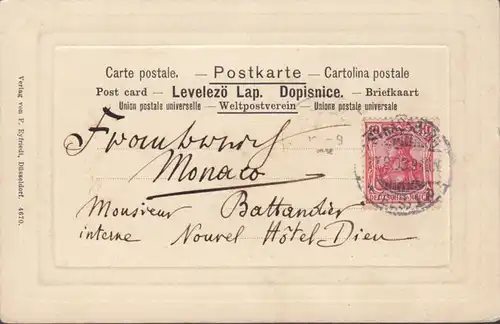 Carte postale. — Postkarte — Cartolina postale
Post card — Levelezö Lap. Dopisnice. — Briefkaart
Union postale universelle — Weltpostverein — Unione postale universale
Monaco
Monsieur Battandier
interne Nouvel Hôtel-Dieu
DEUTSCHES REICH
Verlag von F. Eyfriedt, Düsseldorf. 4670.